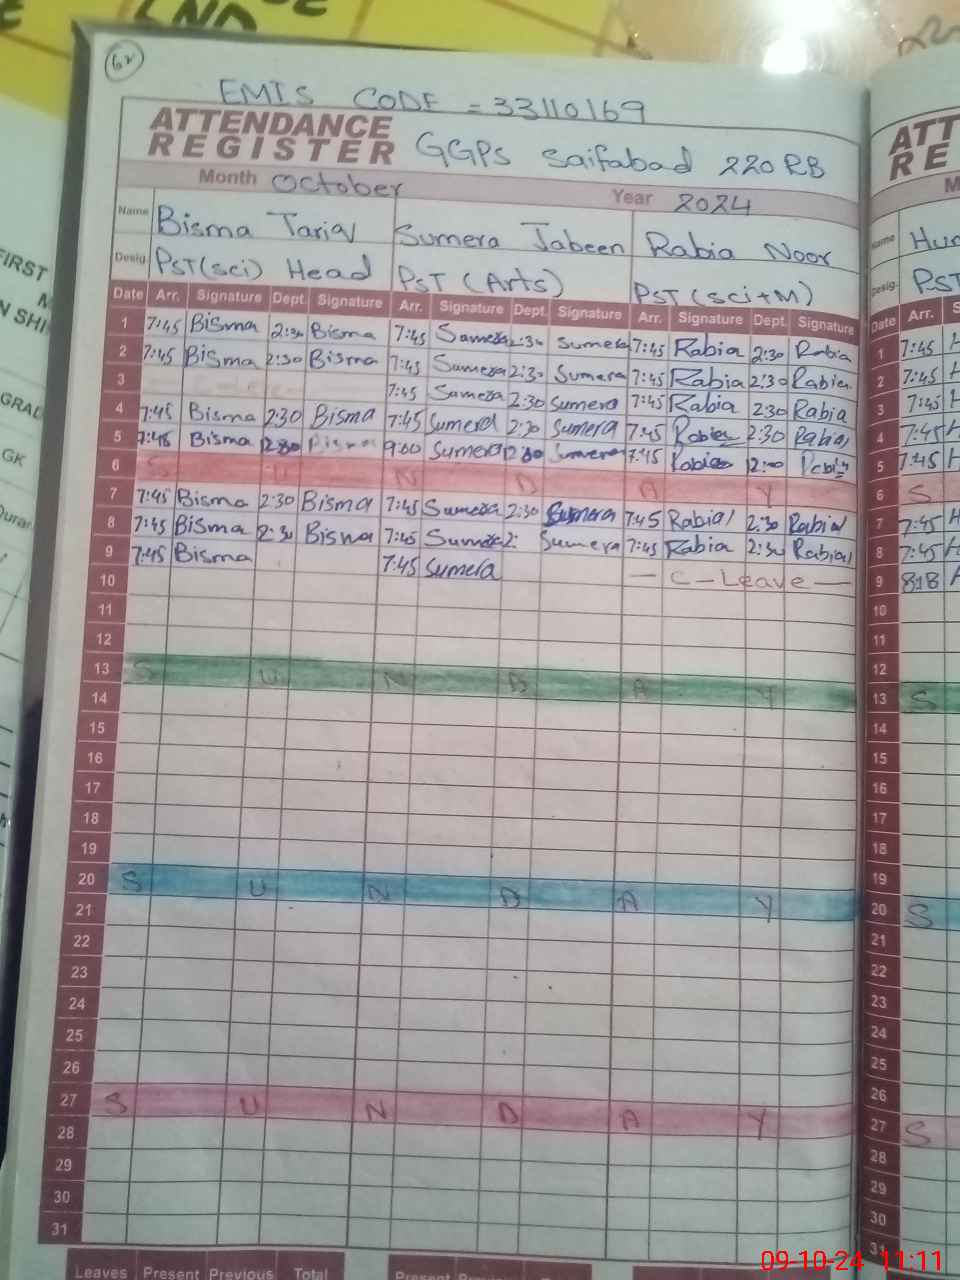 62
EMIS CODE = 33110169
ATTENDANCE
REGISTER GGPS Saifabad 220 RB
Month October Year 2024
Name Bisma Tariq Sumera Jabeen Rabia Noor
Desig. PST(sci) Head PST (Arts) PST (sci+M)
Date Arr. Signature Dept. Signature Arr. Signature Dept. Signature Arr. Signature Dept. Signature
1 7:45 Bisma 2:30 Bisma 7:45 Sumera 2:30 Sumera 7:45 Rabia 2:30 Rabia
2 7:45 Bisma 2:30 Bisma 7:45 Sumera 2:30 Sumera 7:45 Rabia 2:30 Rabia
3 7:45 Sumera 2:30 Sumera 7:45 Rabia 2:30 Rabia
4 7:45 Bisma 2:30 Bisma 7:45 Sumera 2:30 Sumera 7:45 Rabia 2:30 Rabia
5 7:45 Bisma Bisma 9:00 Sumera Sumera 7:45 Rabia 12:00 Rabia
6 S U N D A Y
7 7:45 Bisma 2:30 Bisma 7:45 Sumera 2:30 Sumera 7:45 Rabia 2:30 Rabia
8 7:45 Bisma 2:30 Bisma 7:45 Sumera 2: Sumera 7:45 Rabia 2:30 Rabia
9 7:45 Bisma 7:45 Sumera — C - Leave —
10
11
12
13 S U N D A Y
14
15
16
17
18
19
20 S U N D A Y
21
22
23
24
25
26
27 S U N D A Y
28
29
30
31
Leaves Present Previous Total Present
ATT
RE
M
Name Hu
Desig. PST
Date Arr. S
1 7:45 H
2 7:45 H
3 7:45 H
4 7:45 H
5 7:45 H
6 S
7 7:45 H
8 7:45 H
9 8:18
10
11
12
13 S
14
15
16
17
18
19
20 S
21
22
23
24
25
26
27 S
28
29
30
31
FIRST
M
N SHI
GRAD
GK
09-10-24 11:11